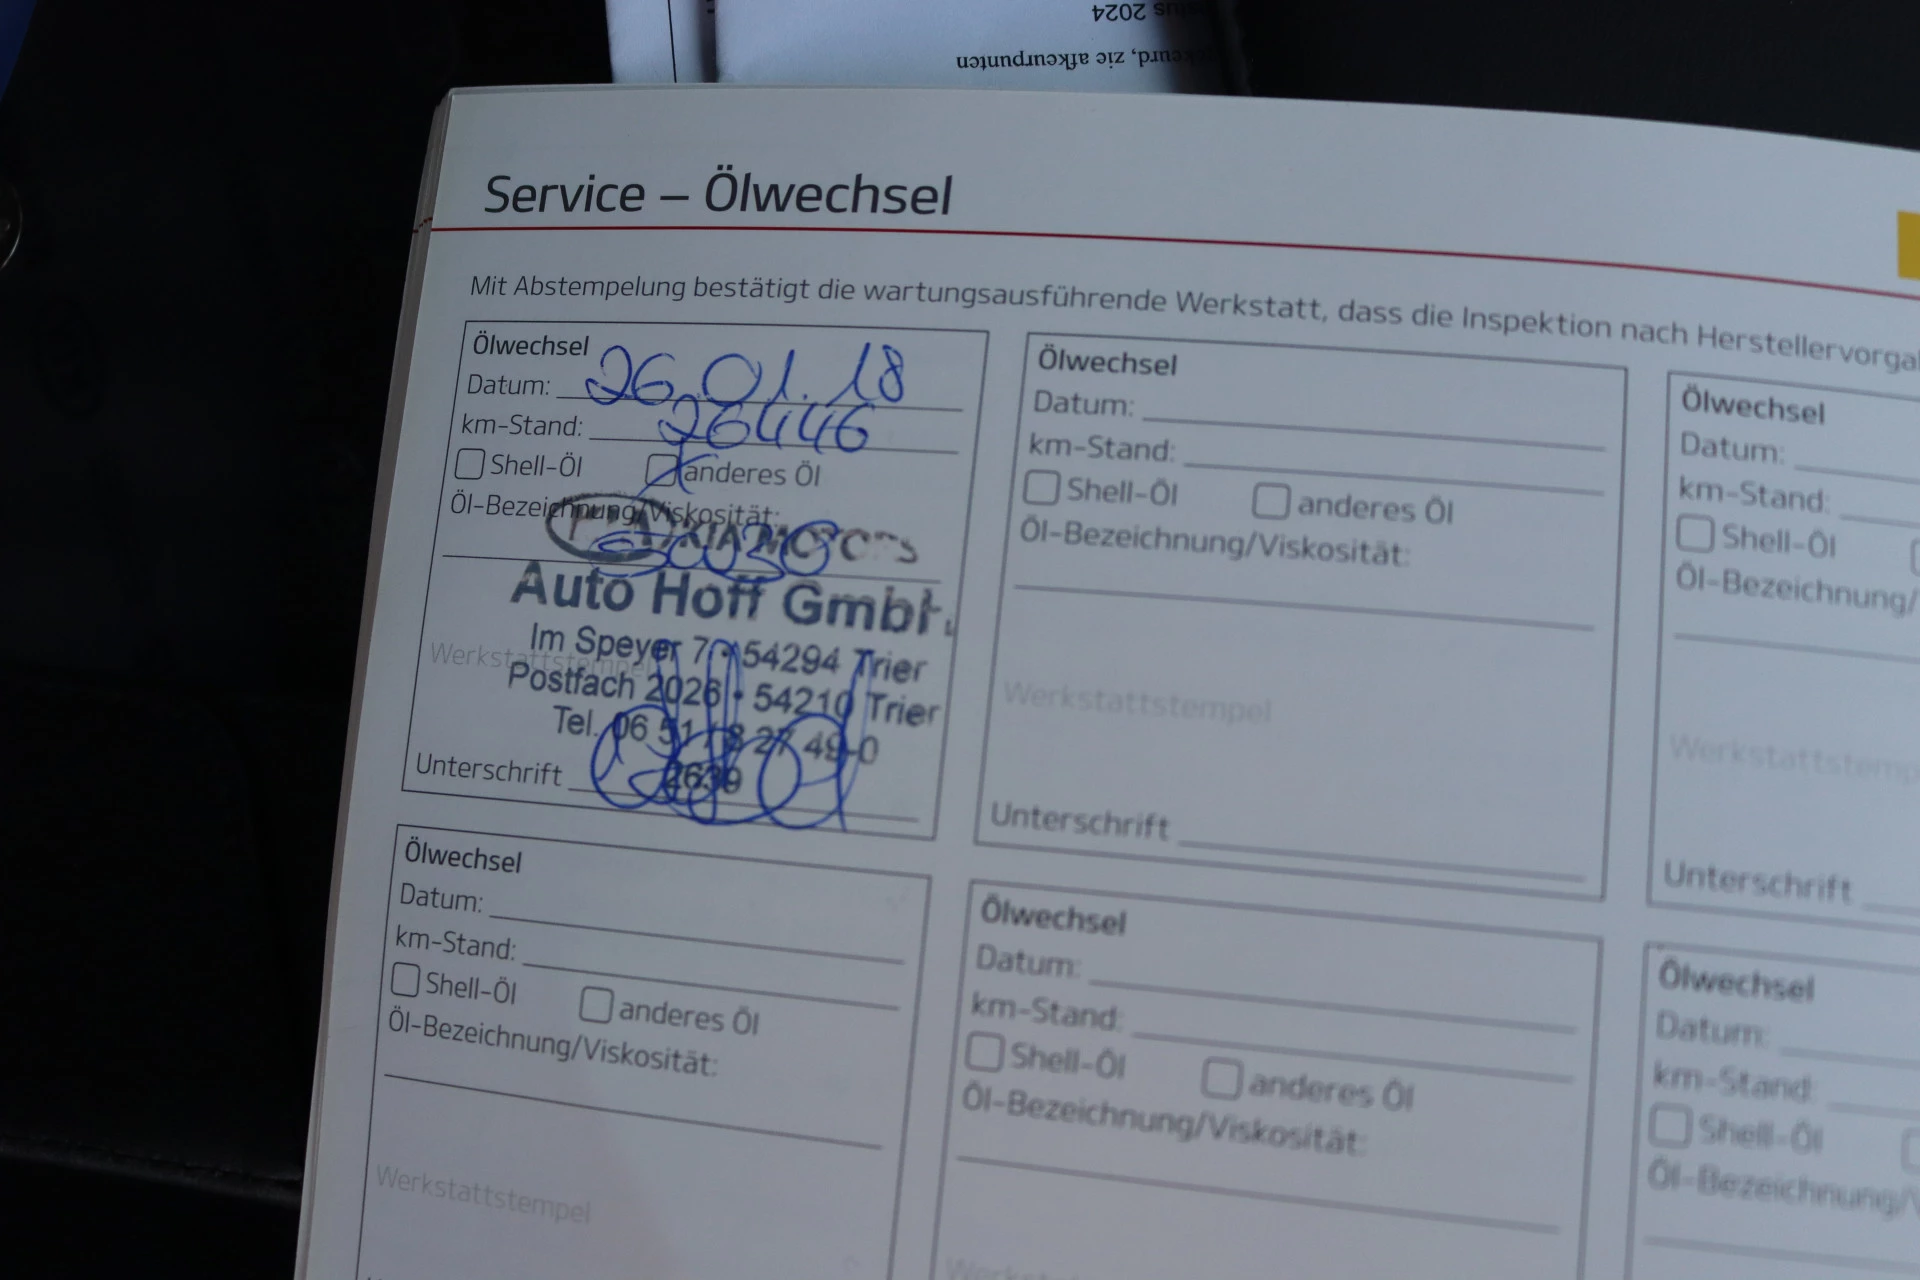 2024
afkeurd, zie afkeurpunten
Service – Ölwechsel
Mit Abstempelung bestätigt die wartungsausführende Werkstatt, dass die Inspektion nach Herstellervorga
Ölwechsel
Datum: 26.01.18
km-Stand: 26446
Shell-Öl anderes Öl
Öl-Bezeichnung/Viskosität:
KIA MOTORS
Auto Hoff GmbH
Im Speyer 7 • 54294 Trier
Werkstattstempel
Postfach 2026 • 54210 Trier
Tel. 06 51 / 8 27 49-0
Unterschrift 2639
Ölwechsel
Datum:
km-Stand:
Shell-Öl anderes Öl
Öl-Bezeichnung/Viskosität:
Werkstattstempel
Unterschrift
Ölwechsel
Datum:
km-Stand:
Shell-Öl
Öl-Bezeichnung/
Werkstattstemp
Unterschrift
Ölwechsel
Datum:
km-Stand:
Shell-Öl anderes Öl
Öl-Bezeichnung/Viskosität:
Werkstattstempel
Ölwechsel
Datum:
km-Stand:
Shell-Öl anderes Öl
Öl-Bezeichnung/Viskosität:
Ölwechsel
Datum:
km-Stand:
Shell-Öl
Öl-Bezeichnung/V